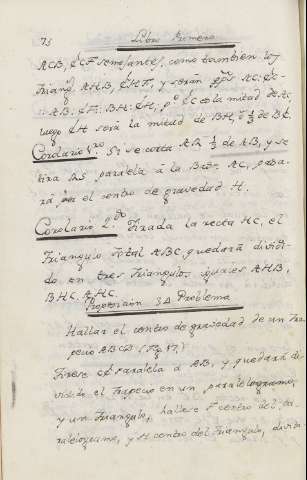 Libro Primero
ACB, ȻCF semejantes, como tambien los
Triang.s AHB, ȻHF, y serán AC: ȻC-
AB: ȻF: BH: ȻH, p.o ȻC es la mitad de AC,
luego ȻH será la mitad de BH, ó ⅓ de BȻ.
Corolario 1.ro Si se corta AR ⅓ de AB, y se
tira RS paralela á la Base AC, pasa-
rá por el centro de gravedad H.
Corolario 2.do Tirada la recta HC, el
Triangulo total ABC, quedará dividi-
do en tres Triangulos iguales AHB,
BHC, AHC.
Proposicion 3.a Problema
Hallar el centro de gravedad de un Tra-
pecio ABCD
Tirese paralela á AB, y quedará di-
vidido el Trapecio en un paralelogramo,
y un Triangulo, hallese F centro del pa-
ralelogramo, y H centro del Triangulo, divida